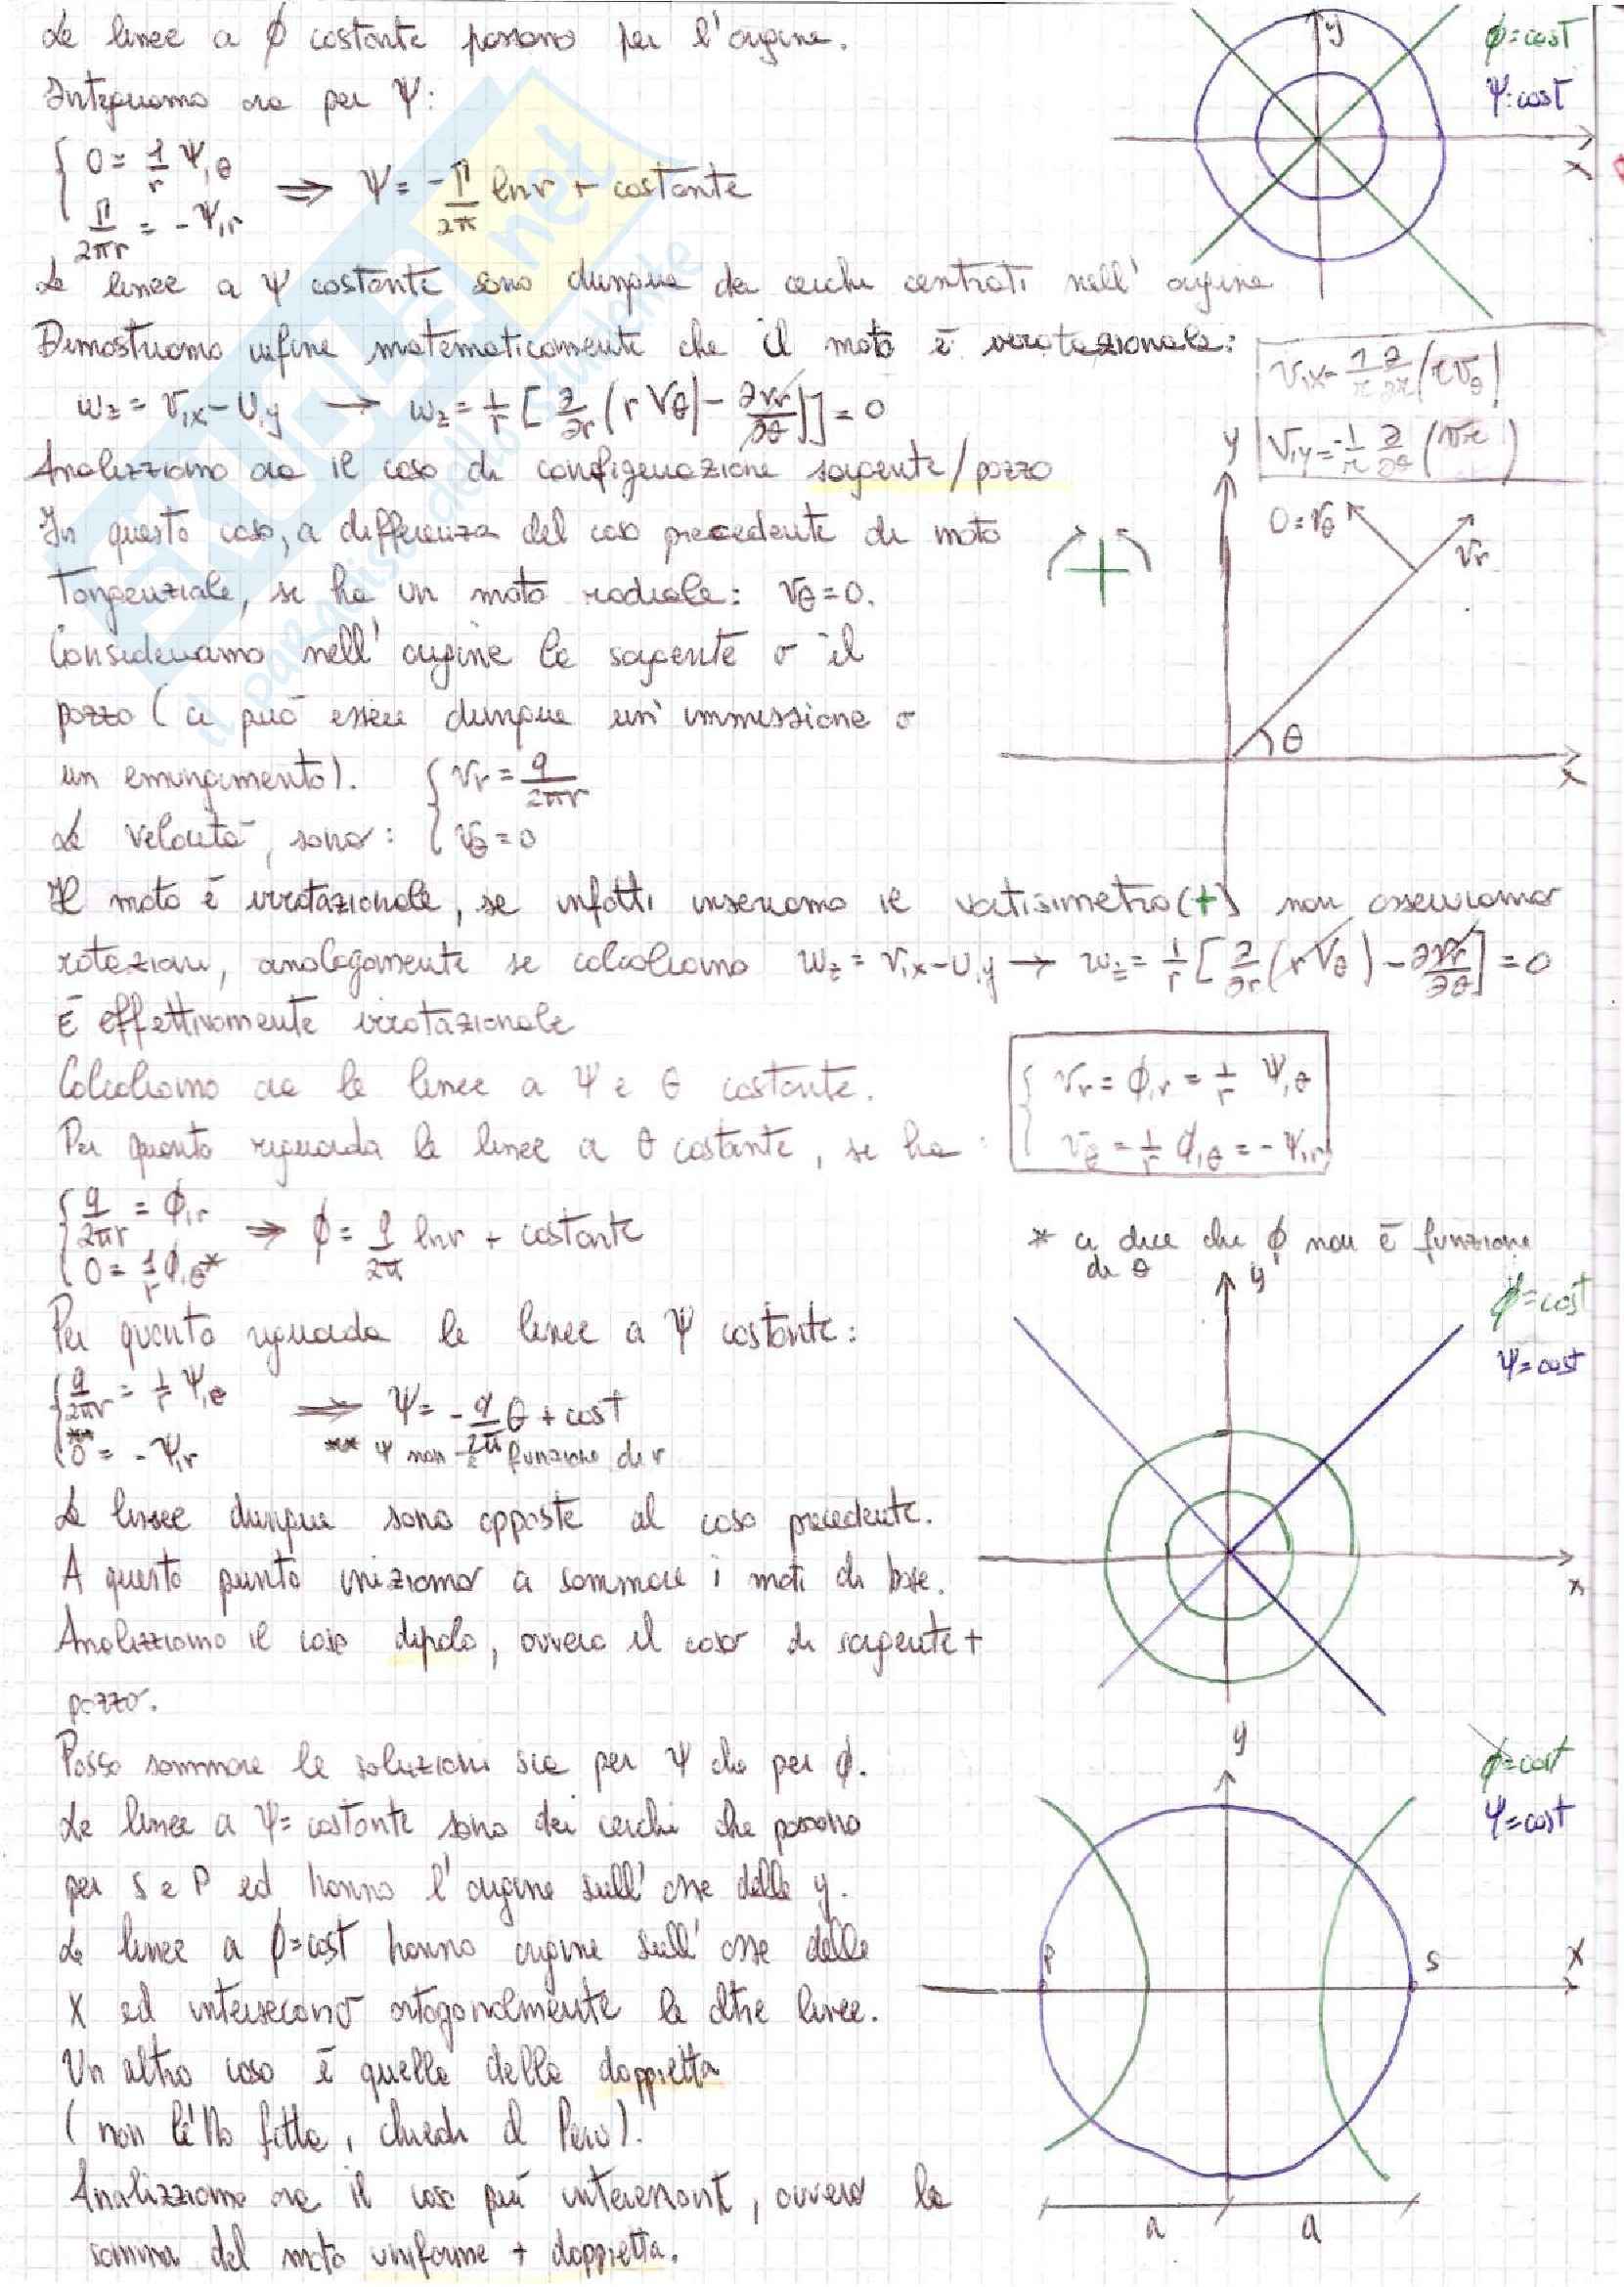 Le linee a ϕ costante passano per l'origine.
ϕ=cost
ψ=cost
y
x
Integriamo ora per ψ:
{ 0 = 1/r ψ,θ
Γ/2πr = -ψ,r
⇒ ψ = -Γ/2π lnr + costante
Le linee a ψ costante sono dunque dei cerchi centrati nell'origine
Dimostriamo infine matematicamente che il moto è irrotazionale:
ωz = v,x - u,y → ωz = 1/r [∂/∂r (r vθ) - ∂vr/∂θ] = 0
v,x = 1/r ∂/∂r (r vθ)
v,y = -1/r ∂/∂θ (vr)
Analizziamo ora il caso di configurazione sorgente/pozzo
In questo caso, a differenza del caso precedente di moto
tangenziale, si ha un moto radiale: vθ=0.
Consideriamo nell'origine la sorgente o il
pozzo (ci può essere dunque un'immissione o
un emungimento).
Le velocità, sono:
{ vr = q/2πr
vθ = 0
y
0=vθ
vr
θ
x
Il moto è irrotazionale, se infatti inseriamo il vortisimetro (+) non osserviamo
rotazioni, analogamente se calcoliamo ωz = v,x - u,y → ωz = 1/r [∂/∂r (r vθ) - ∂vr/∂θ] = 0
È effettivamente irrotazionale
Calcoliamo ora le linee a ψ e θ costante.
Per quanto riguarda le linee a θ costante, si ha:
{ vr = ϕ,r = 1/r ψ,θ
vθ = 1/r ϕ,θ = -ψ,r
{ q/2πr = ϕ,r
0 = 1/r ϕ,θ*
⇒ ϕ = q/2π lnr + costante
* ci dice che ϕ non è funzione
di θ
Per quanto riguarda le linee a ψ costante:
{ q/2πr = 1/r ψ,θ
**
0 = -ψ,r
⇒ ψ = -q/2π θ + cost
** ψ non è funzione di r
y
ϕ=cost
ψ=cost
x
Le linee dunque sono opposte al caso precedente.
A questo punto iniziamo a sommare i moti di base.
Analizziamo il caso dipolo, ovvero il caso di sorgente +
pozzo.
Posso sommare le soluzioni sia per ψ che per ϕ.
Le linee a ψ= costante sono dei cerchi che passano
per S e P ed hanno l'origine sull'asse delle y.
Le linee a ϕ=cost hanno origine sull'asse delle
x ed intersecano ortogonalmente le altre linee.
Un altro caso è quello della doppietta
(non l'ho fatta, chiedi al                ).
Analizziamo ora il caso più interessante, ovvero la
somma del moto uniforme + doppietta.
y
ϕ=cost
ψ=cost
P
S
x
a
a
SKUOLA.net
il paradiso dello studente